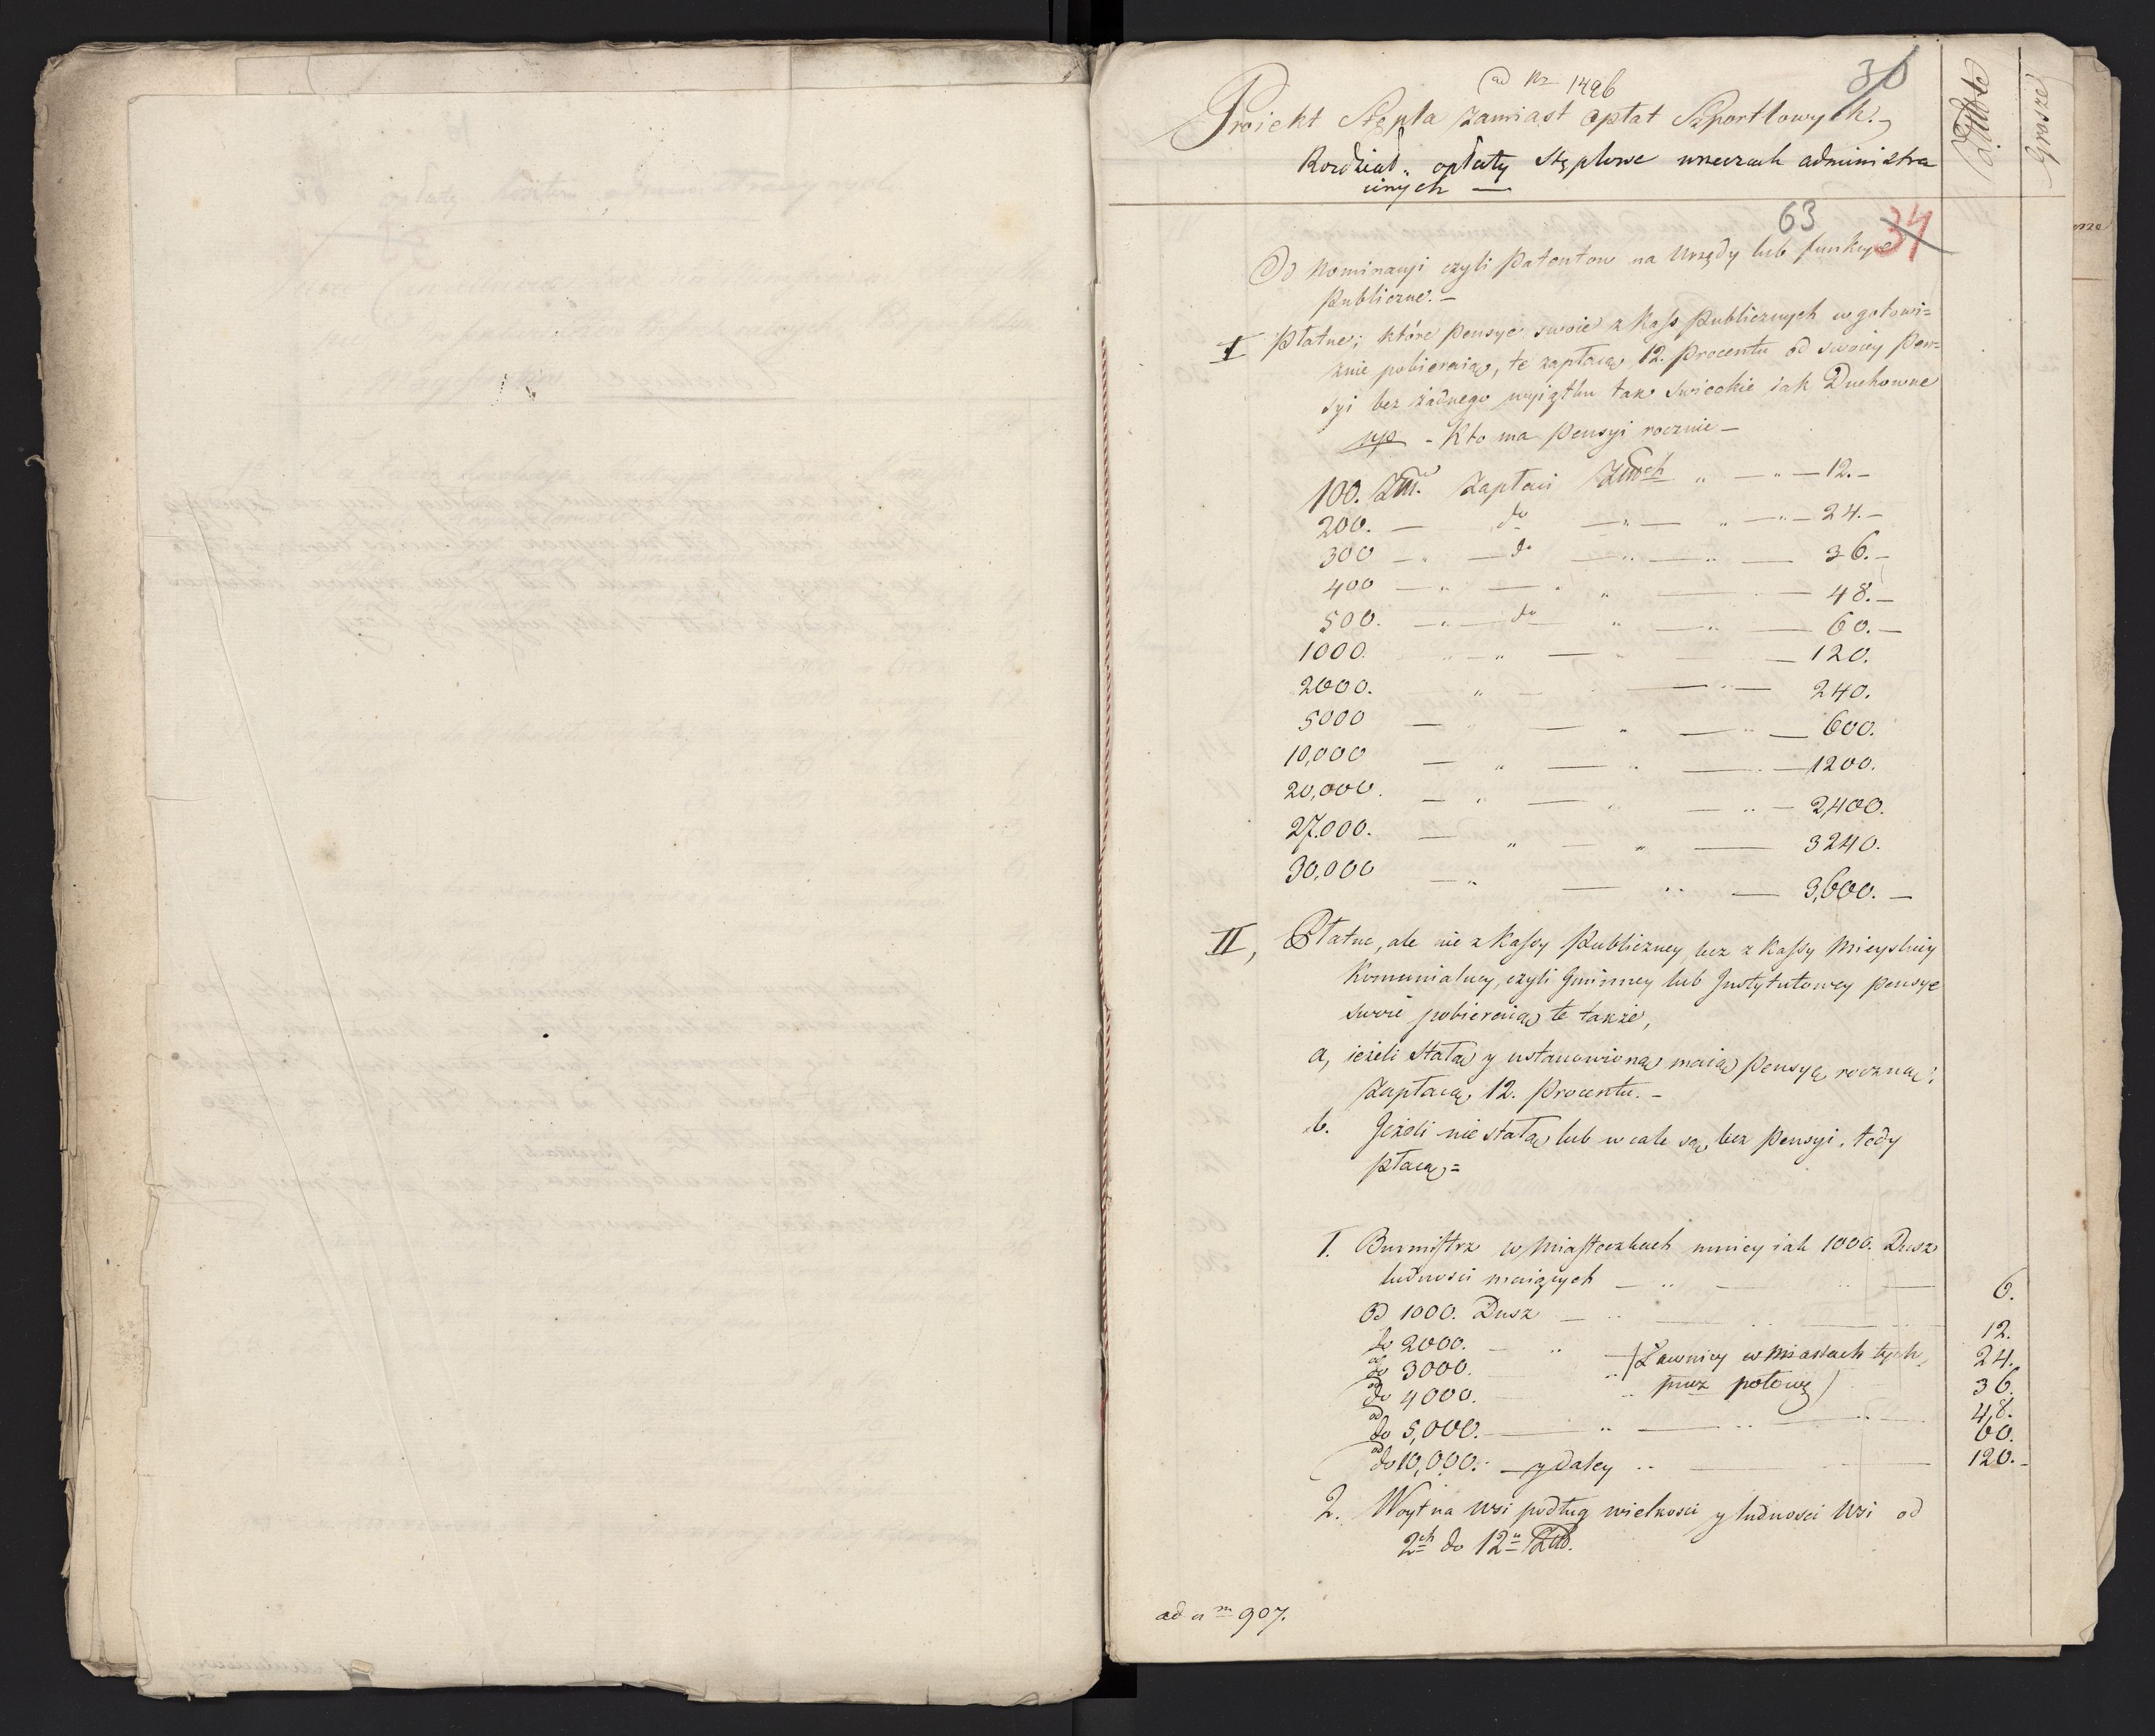 ad Nr 1496
30
Proiekt Stępla zamiast opłat Szportlowych.
Rozdział. opłaty stęplowe wrzeczach administra
cinych —
Złote
Grosze
63
34
Od Nominacyi czyli Patentow na Urzędy lub funkcye
Publiczne. —
I Płatne; które Pensye swoie z Kass Publicznych w gotowi=
znie pobieraią, te zapłacą 12. Procentu od swoiey Pen=
syi bez żadnego wyiątku tak swieckie iak Duchowne
np - Kto ma Pensyi rocznie —
100. Złł. Zapłaci Złłch " — " — 12. —
200. — do — " — " — " — 24. —
300 — " — do — " — " — 36. —
400 — " — " — 48. —
500. — " — do " — " — 60. —
1000. " — — 120.
2000. " — — " — 240.
5000 — " — " — " — 600.
10,000 — " — " — — 1200.
20,000. — " — " — " — 2,400.
27.000. — " — " — 3240.
30,000 — " — " — 3,600. —
II, Płatne, ale nie z Kassy Publiczney, lecz z Kassy Mieyskiey
Komunialney, czyli Gminney lub Instytutowey pensye
swoie pobieraią te także,
a, ieżeli stałą y ustanowioną maią Pensyą roczną;
Zapłacą, 12. Procentu. —
b. Jeżeli nie stałą lub wcale są bez Pensyi, tedy
płacą =
1. Burmistrz w Miasteczkach mniey iak 1000. Dusz
ludności maiących — " — " — 6.
Od 1000. Dusz — " — " — 12.
do 2000. — " — (Ławnicy w Miastach tych, 24.
od do 3000. " przez połowę) 36.
od do 4000. " 48.
od do 5,000. — " — " — " — 60.
od do 10,000. — y daley " — 120. —
2. Woyt na Wsi podług wielkosci y ludnosci Wsi od
2ch do 12u Złł.
ad nm 907.